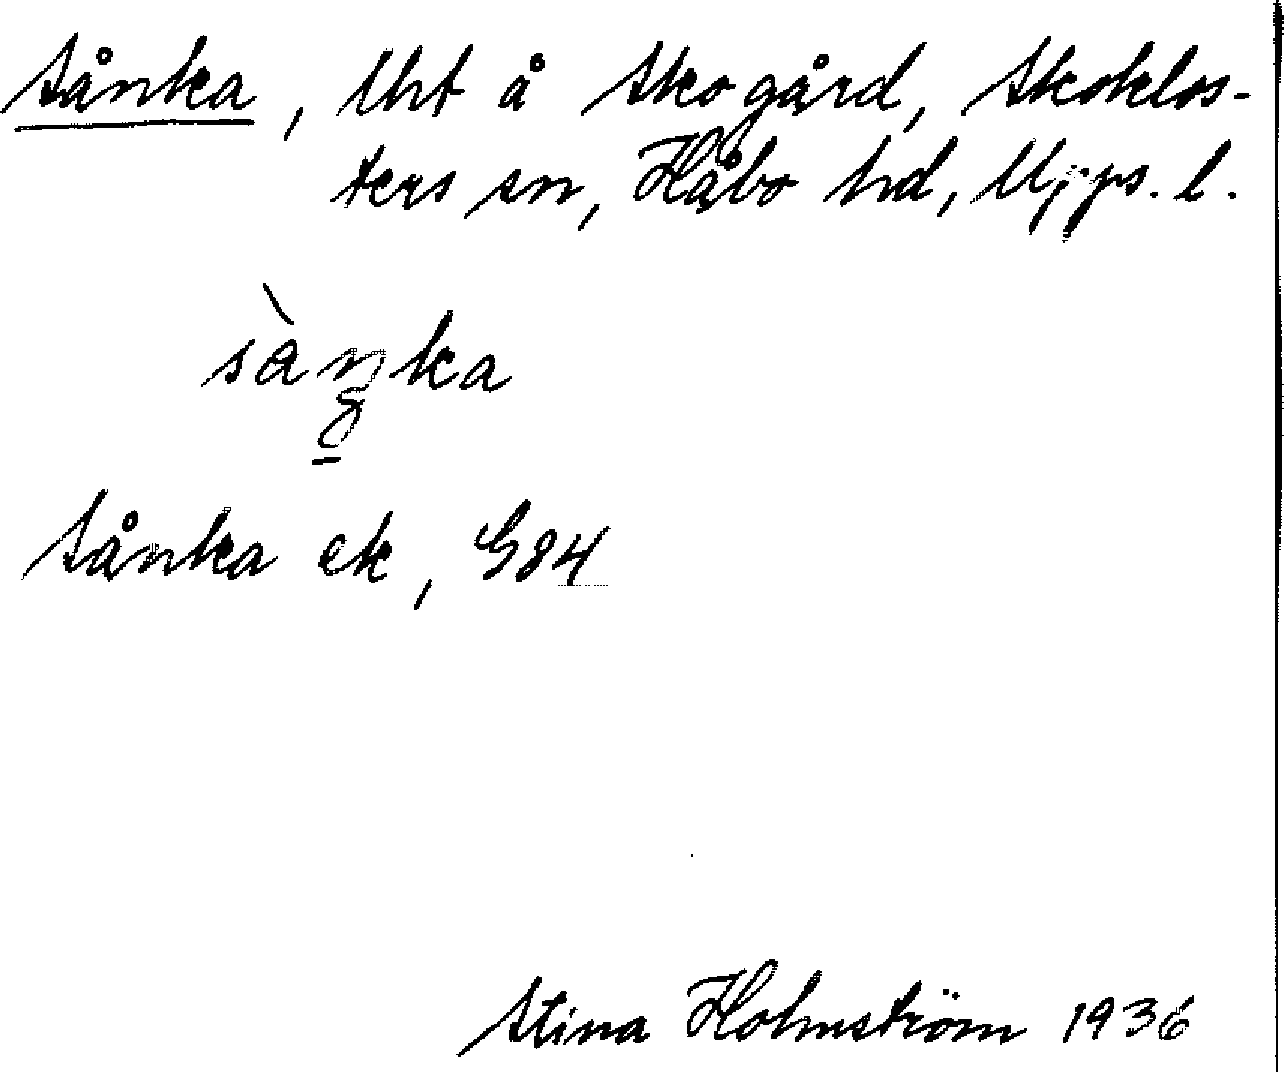 Sånka, Uht å Skogård, Skoklos-
ters sn, Håbo hd, Upps. l.
sàŋka
Sånka ek, G84
Stina Holmström 1936